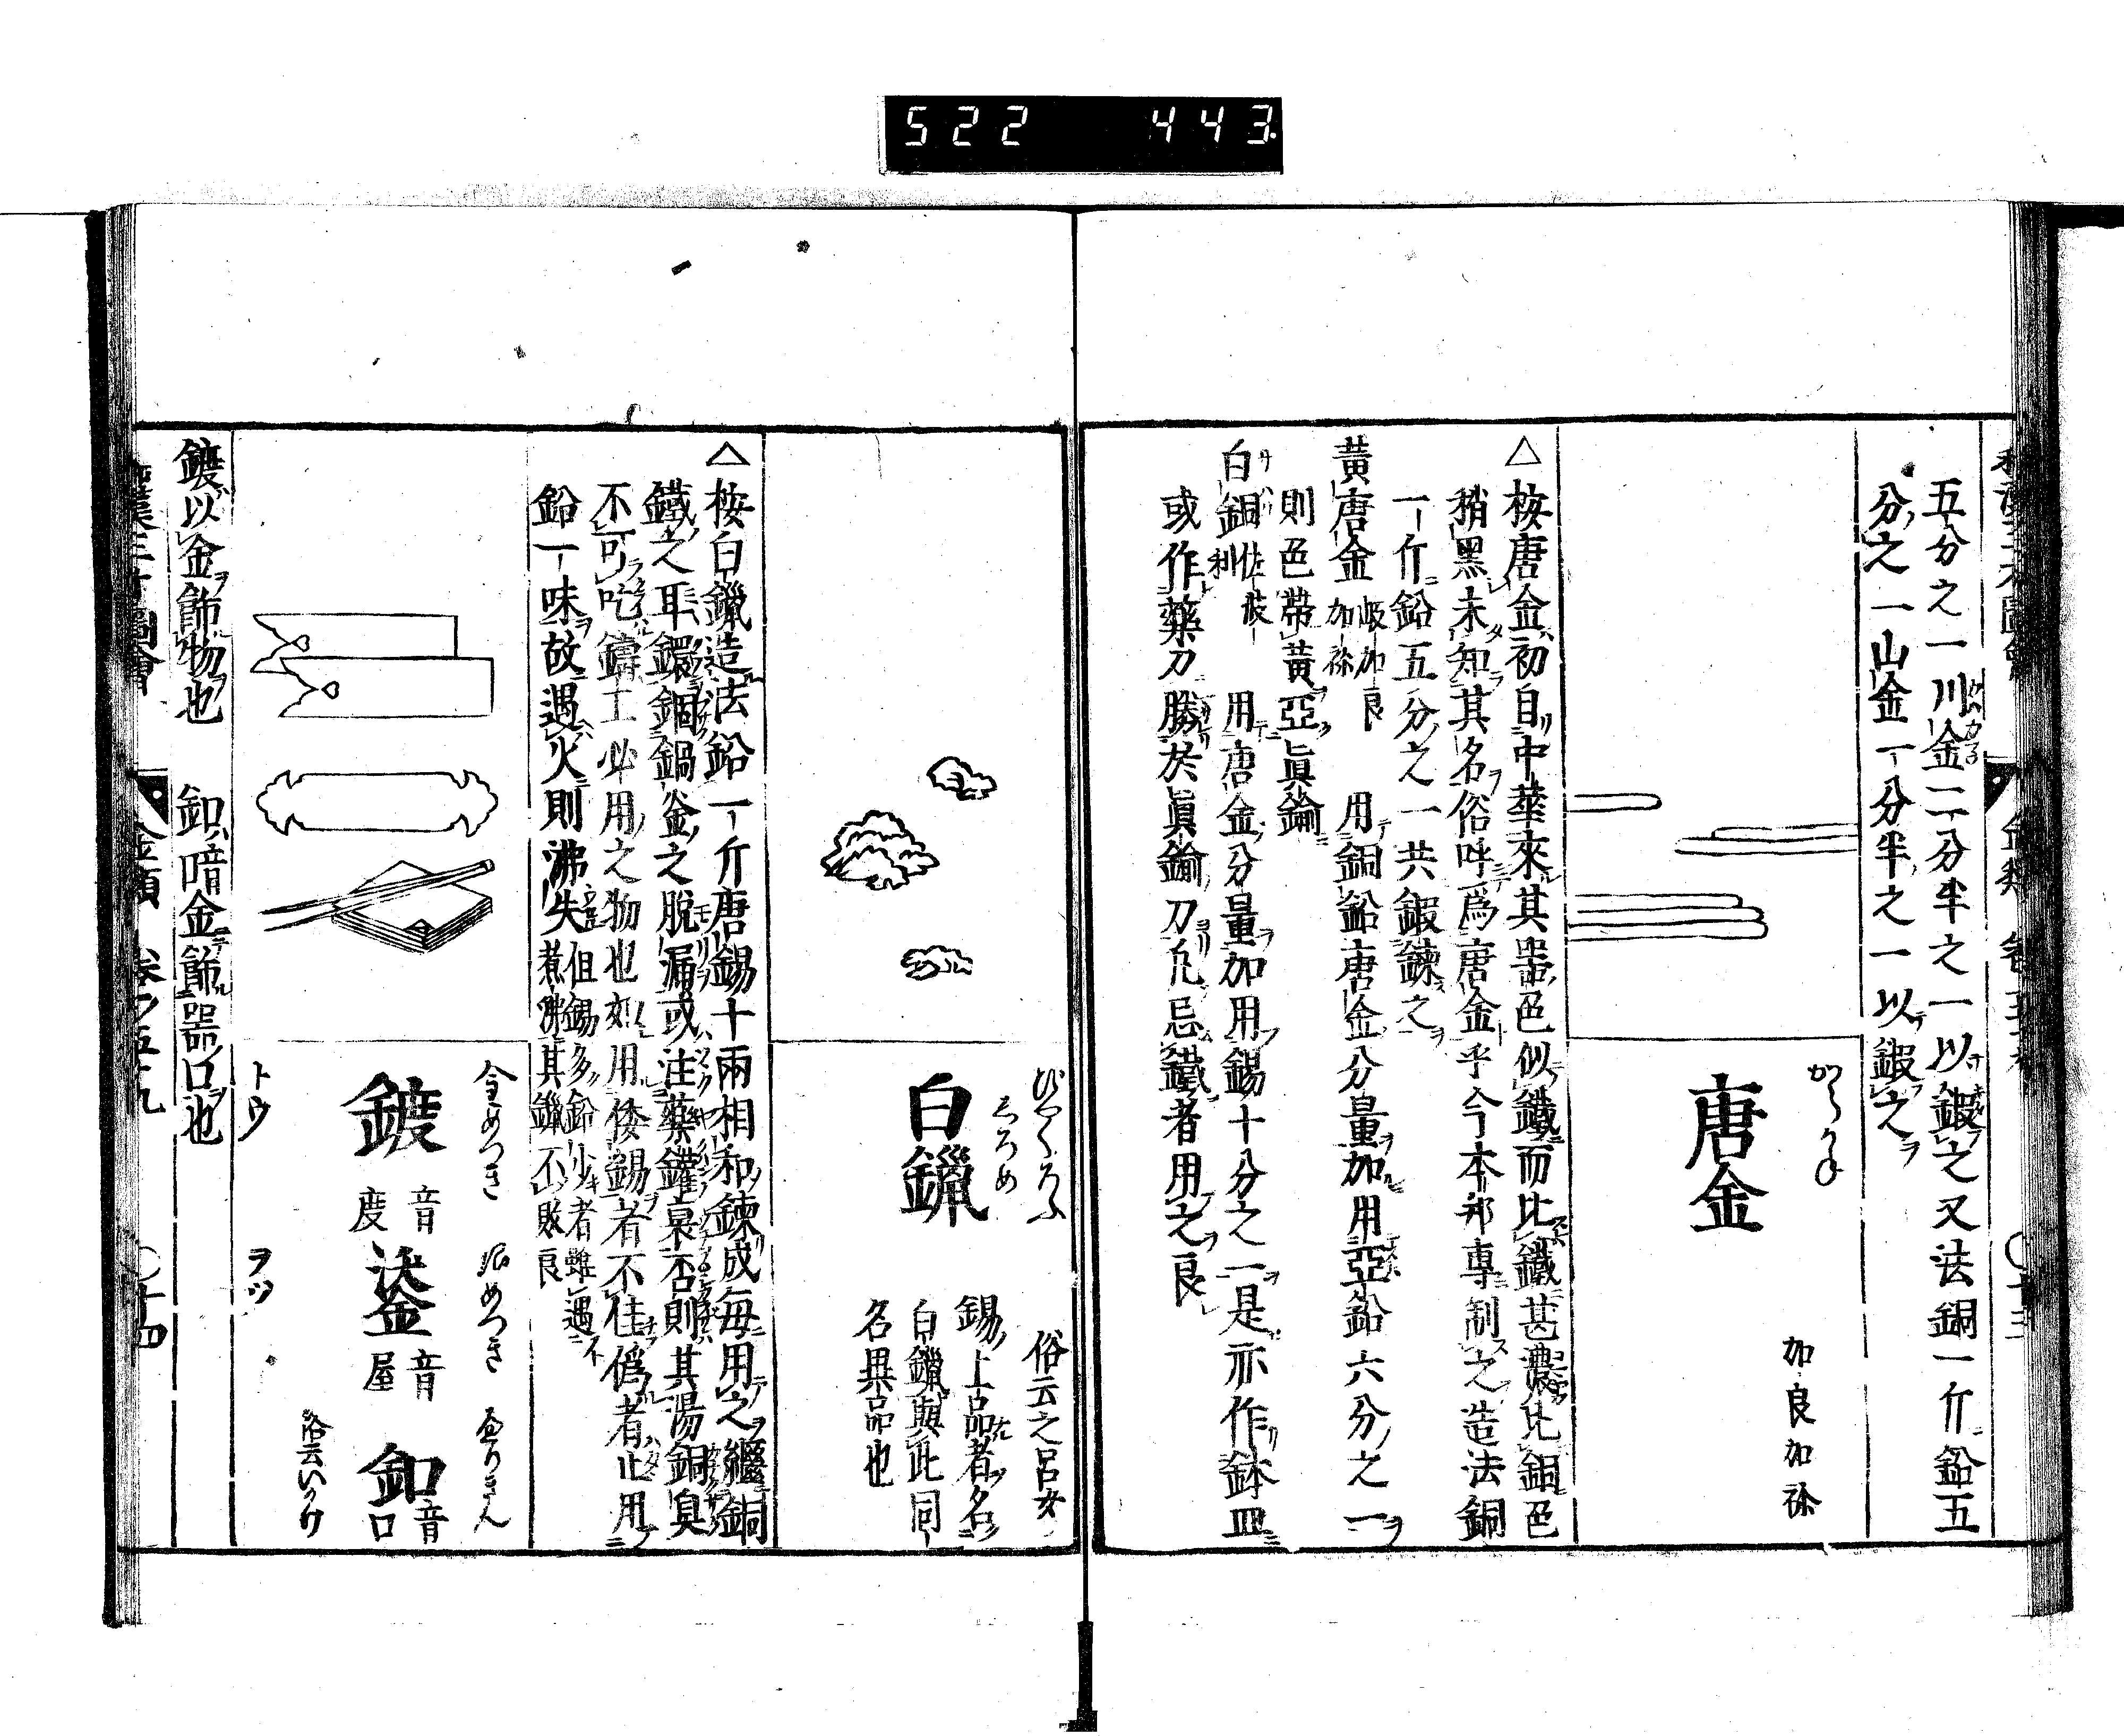 522 443
五分之一川金二分半之一以鍜之又法銅一斤鉛五
分之一山金一分半之一以鍜之
からかね
唐金
加良加祢
△桉唐金初自中華來其噐色似鐵而比鐵甚濃比銅色
稍黑未知其名俗呼爲唐金乎今本邦專制之造法銅
一斤鉛五分之一共鍜鍊之
黃唐金 岐加良加祢 用銅鉛唐金分量加用亞鉛六分之一
則色帶黃亞眞鍮
白銅 佐波利 用唐金分量加用錫十分之一是亦作鉢皿
或作藥刀勝於眞鍮刀凢忌鐵者用之良
びやくろふ
しろめ
白鑞
俗云之呂女
錫上品者名
白鑞與此同
名異品也
△桉白鑞造法鉛一斤唐錫十兩相和鍊成每用之繼銅
鐵之耳鐶錮鍋釜之脫漏或注藥鑵裏否則其湯銅臭
不可吃鑄工必用之物也如用倭錫者不佳僞者止用
鉛一味故遇火則沸失 但錫多鉛少者雖遇不
煮沸其鑞不敗良
金めつき 泥めつき ゑりきん
鍍 音度 鋈 音屋 釦 音口
俗云いつかけ
トウ ヲツ
鍍以金飾物也 釦以金飾噐口也
金類 卷之五十九 〇十四